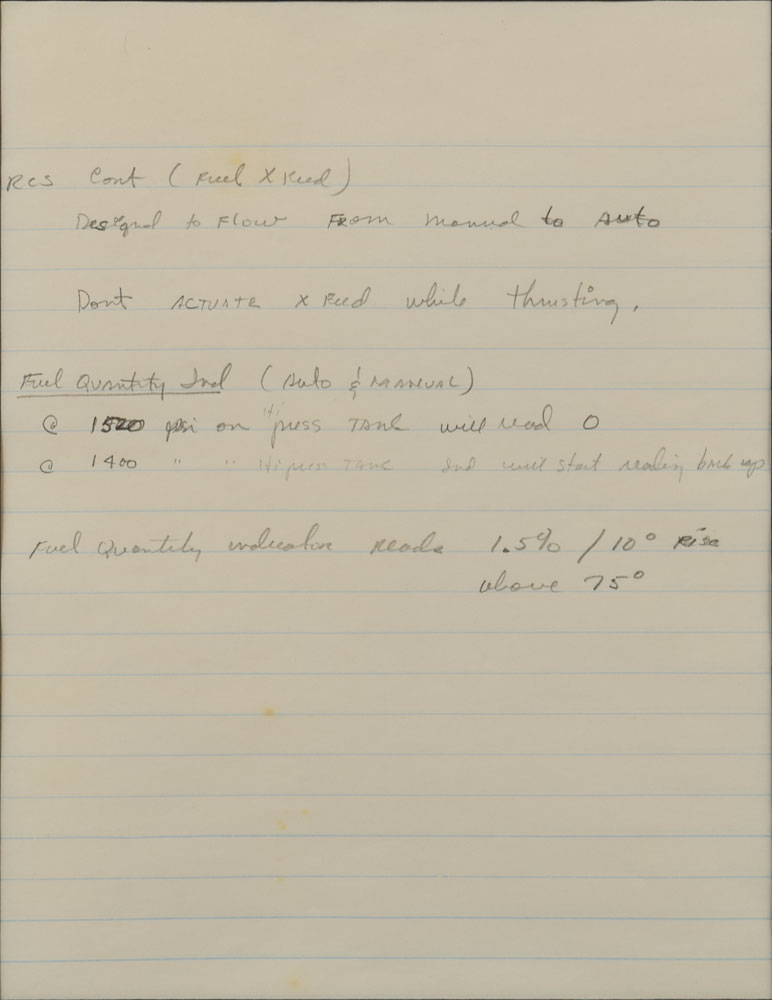 RCS Cont (Fuel X Feed)
Designed to Flow From manual to Auto
Dont ACTUATE X Feed while thrusting.
Fuel Quantity Ind (Auto & MANUAL)
@ 1520 psi on Hi press TANK will read 0
@ 1400 " " Hi press TANK Ind will start reading back up
Fuel Quantity indicator reads 1.5% / 10° Rise
above 75°